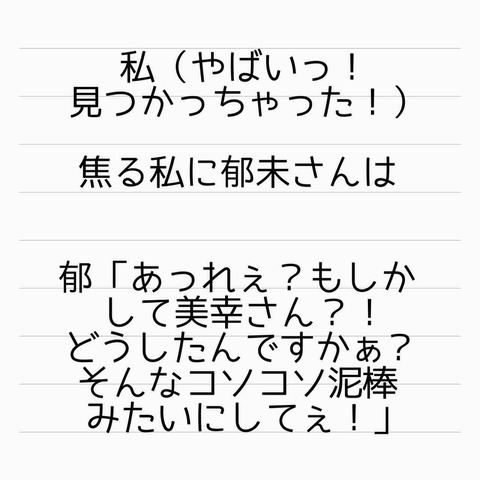 私（やばいっ！
見つかっちゃった！）
焦る私に郁未さんは
郁「あっれぇ？もしか
して美幸さん？！
どうしたんですかぁ？
そんなコソコソ泥棒
みたいにしてぇ！」